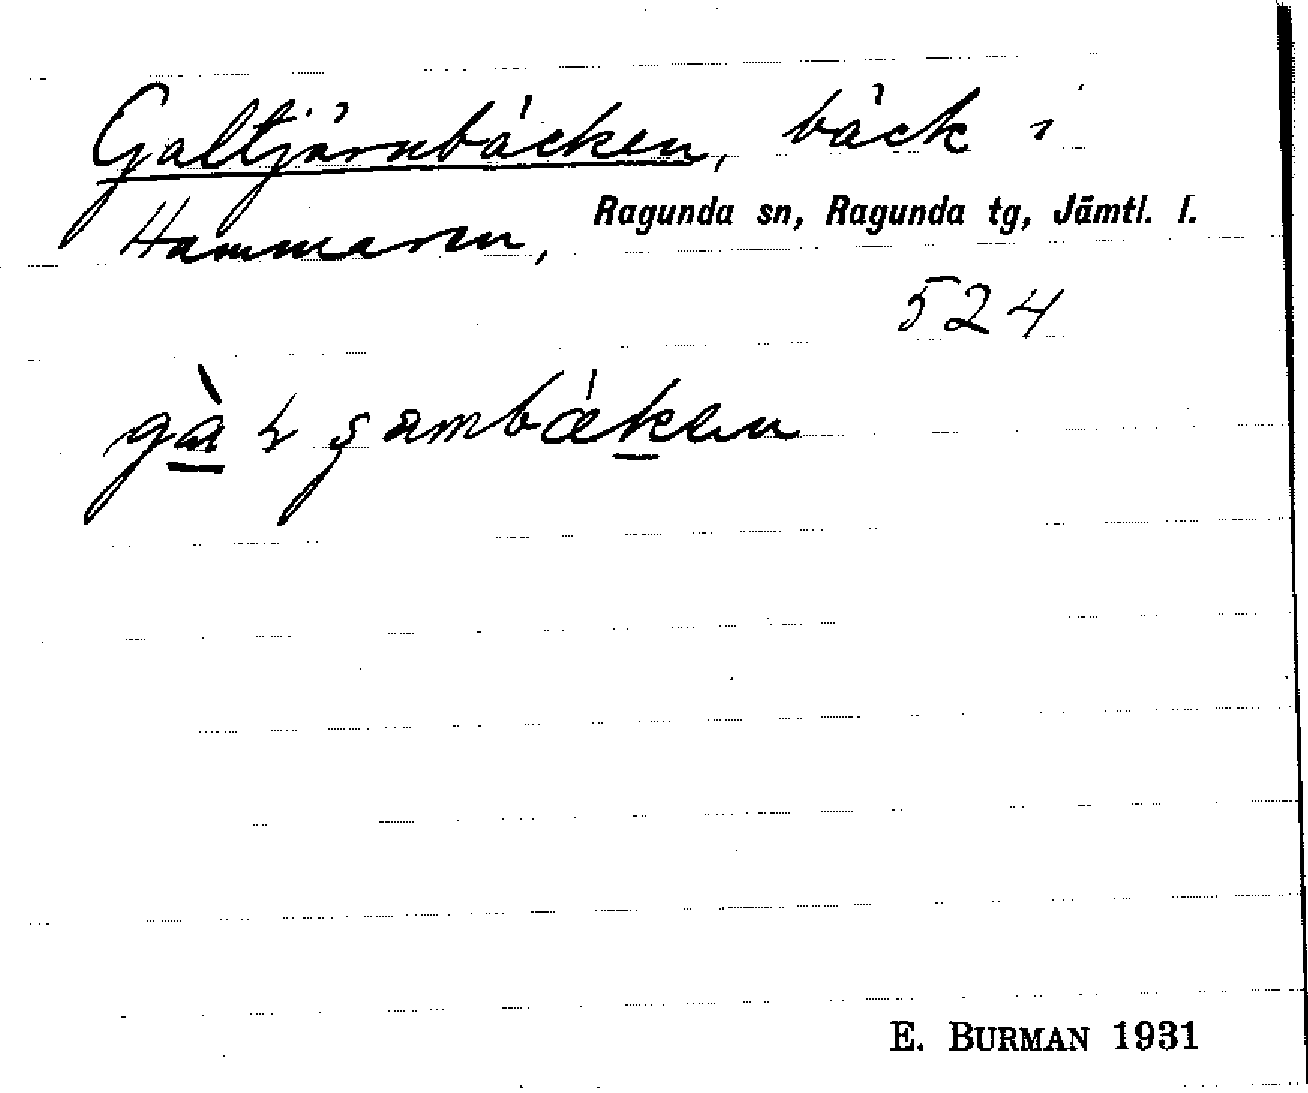 Galtjärnbäcken, bäck i
Hammaren,
Ragunda sn, Ragunda tg, Jämtl. l.
524
E. BURMAN 1931